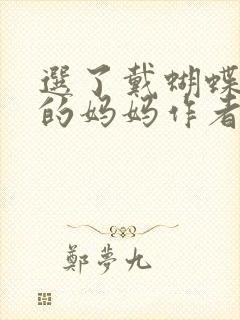 選了戴蝴蝶
的妈妈作者
鄭夢九